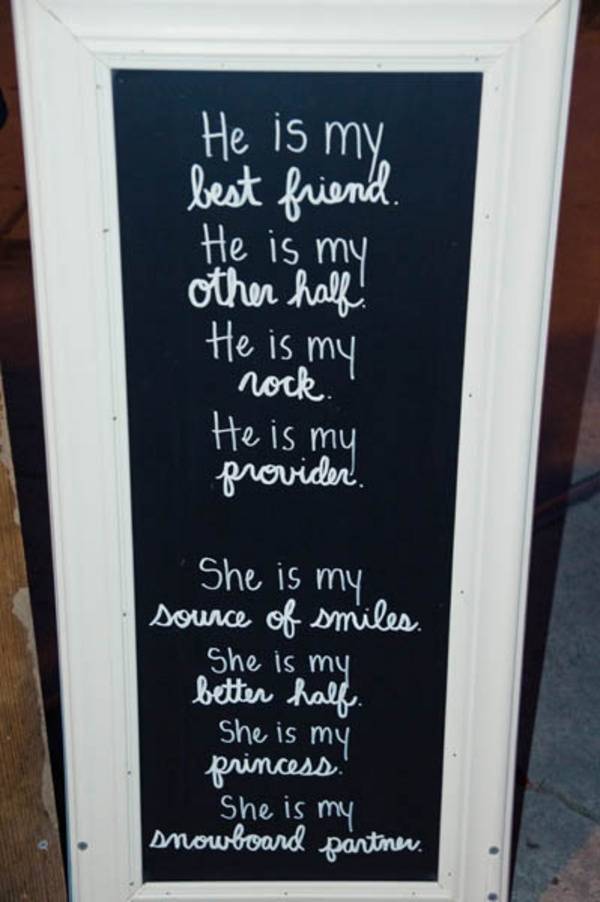 He is my
best friend.
He is my
other half.
He is my
rock.
He is my
provider.
She is my
source of smiles.
She is my
better half.
She is my
princess.
She is my
snowboard partner.